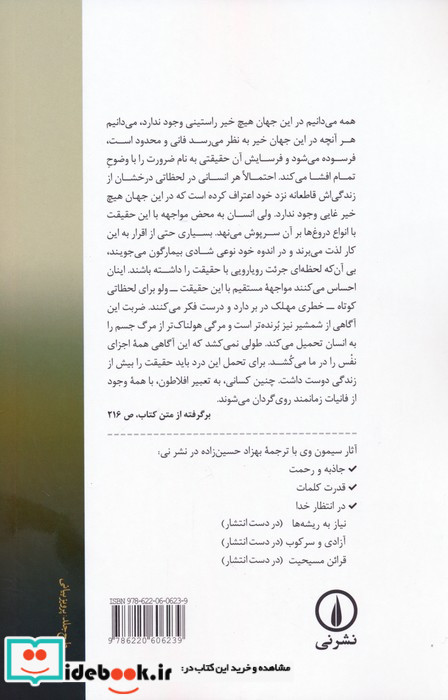 همه می‌دانیم در این جهان هیچ خیر راستینی وجود ندارد، می‌دانیم
هر آنچه در این جهان خیر به نظر می‌رسد فانی و محدود است،
فرسوده می‌شود و فرسایش آن حقیقتی به نام ضرورت را با وضوحِ
تمام افشا می‌کند. احتمالاً هر انسانی در لحظاتی درخشان از
زندگی‌اش قاطعانه نزد خود اعتراف کرده است که در این جهان هیچ
خیر غایی وجود ندارد. ولی انسان به محض مواجهه با این حقیقت
با انواع دروغ‌ها بر آن سرپوش می‌نهد. بسیاری حتی از اقرار به این
کار لذت می‌برند و در اندوه خود نوعی شادی بیمارگون می‌جویند،
بی آن‌که لحظه‌ای جرئت رویارویی با حقیقت را داشته باشند. اینان
احساس می‌کنند مواجههٔ مستقیم با این حقیقت ــ ولو برای لحظاتی
کوتاه ــ خطری مهلک در بر دارد و درست فکر می‌کنند. ضربت این
آگاهی از شمشیر نیز بُرنده‌تر است و مرگی هولناک‌تر از مرگ جسم را
به انسان تحمیل می‌کند. طولی نمی‌کشد که این آگاهی همهٔ اجزای
نفْس را در ما می‌کُشد. برای تحمل این درد باید حقیقت را بیش از
زندگی دوست داشت. چنین کسانی، به تعبیر افلاطون، با همهٔ وجود
از فانیات زمانمند روی‌گردان می‌شوند.
برگرفته از متن کتاب، ص ۲۱۶
آثار سیمون وی با ترجمهٔ بهزاد حسین‌زاده در نشر نی:
✓ جاذبه و رحمت
✓ قدرت کلمات
✓ در انتظار خدا
نیاز به ریشه‌ها (در دست انتشار)
آزادی و سرکوب (در دست انتشار)
قرائن مسیحیت (در دست انتشار)
ISBN 978-622-06-0623-9
9 786220 606239
نشر نی
طرح جلد: پرویز بیانی
مشاهده و خرید این کتاب در:
idebook.ir